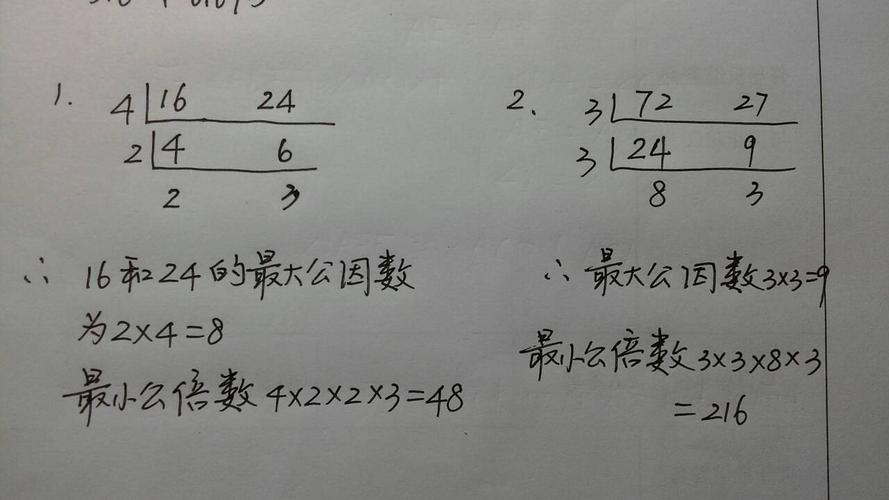 1.
4 16 24
2 4 6
2 3
∴ 16和24的最大公因数
为2×4=8
最小公倍数 4×2×2×3=48
2、
3 72 27
3 24 9
8 3
∴ 最大公因数3×3=9
最小公倍数3×3×8×3
=216